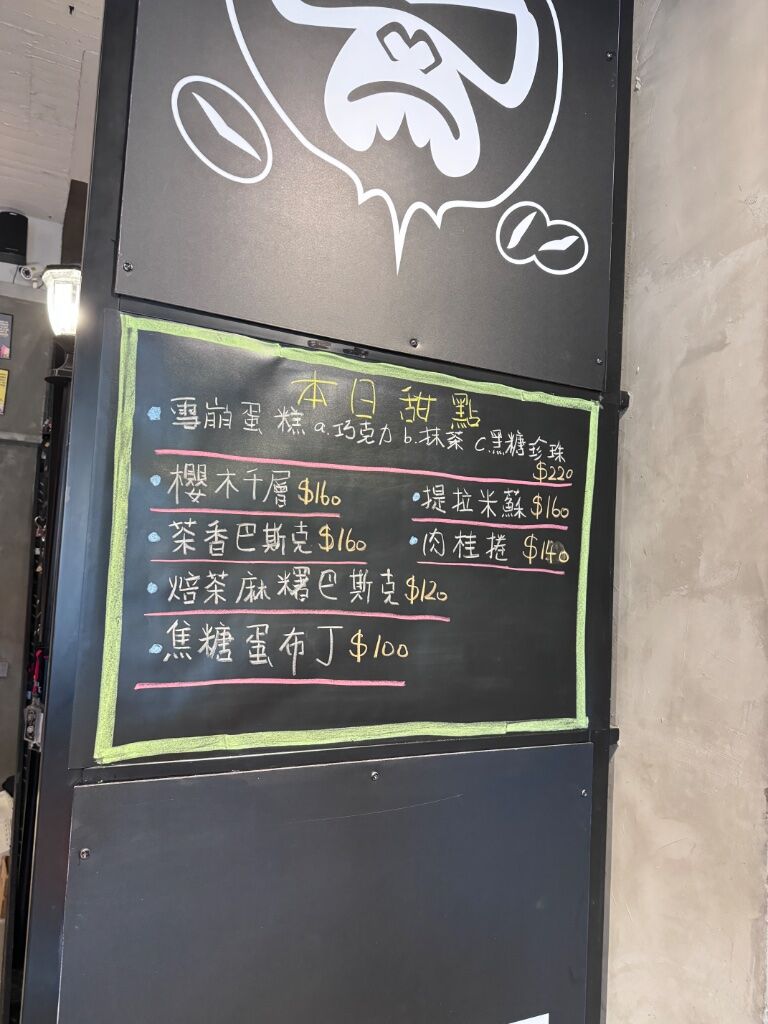 本日甜點
雪崩蛋糕 a.巧克力 b.抹茶 c.黑糖珍珠
$220
櫻木千層 $160
提拉米蘇 $160
茶香巴斯克 $160
肉桂捲 $140
焙茶麻糬巴斯克 $120
焦糖蛋布丁 $100